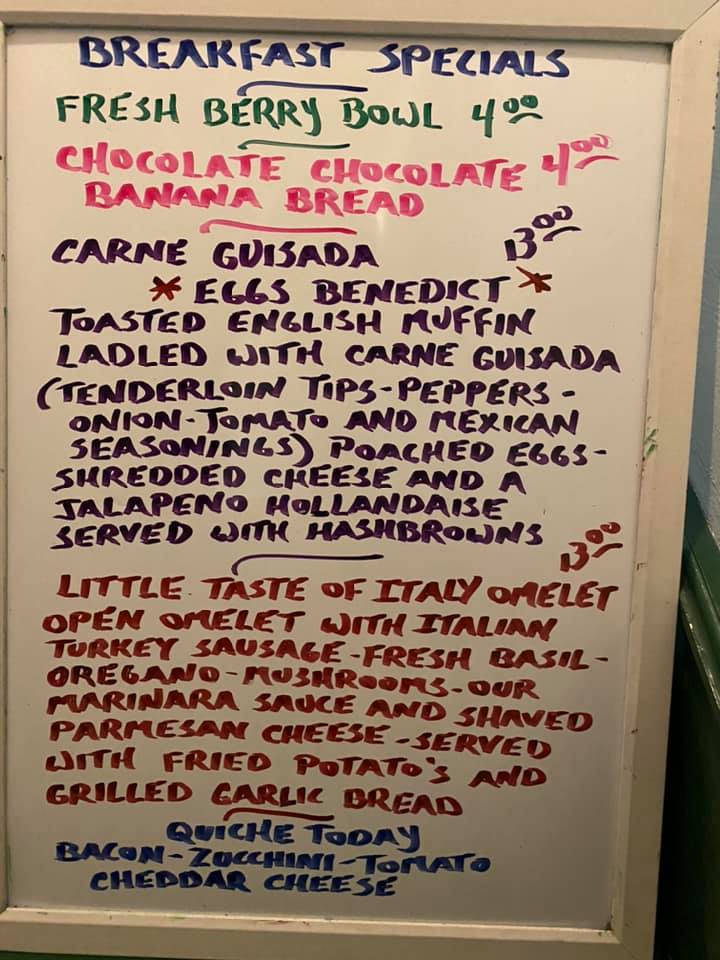 BREAKFAST SPECIALS
FRESH BERRY BOWL 4.00
CHOCOLATE CHOCOLATE 4.00
BANANA BREAD
CARNE GUISADA 13.00
* EGGS BENEDICT *
TOASTED ENGLISH MUFFIN
LADLED WITH CARNE GUISADA
(TENDERLOIN TIPS-PEPPERS-
ONION-TOMATO AND MEXICAN
SEASONINGS) POACHED EGGS-
SHREDDED CHEESE AND A
JALAPENO HOLLANDAISE
SERVED WITH HASHBROWNS
13.00
LITTLE TASTE OF ITALY OMELET
OPEN OMELET WITH ITALIAN
TURKEY SAUSAGE-FRESH BASIL-
OREGANO-MUSHROOMS-OUR
MARINARA SAUCE AND SHAVED
PARMESAN CHEESE-SERVED
WITH FRIED POTATO'S AND
GRILLED GARLIC BREAD
QUICHE TODAY
BACON-ZUCCHINI-TOMATO
CHEDDAR CHEESE